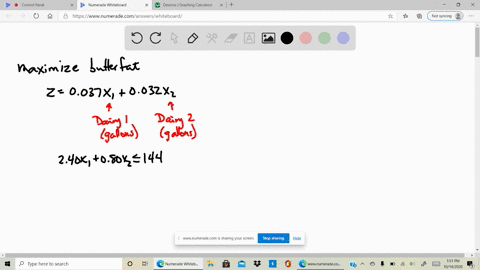 Control Panel
Numerade Whiteboard
Desmos | Graphing Calculator
https://www.numerade.com/answers/whiteboard/
Not syncing
maximize butterfat
Z = 0.037x₁ + 0.032x₂
Dairy 1 Dairy 2
(gallons) (gallons)
2.40x₁ + 0.80x₂ ≤ 144
www.numerade.com is sharing your screen. Stop sharing Hide
Type here to search
Numerade Whiteb...
www.numerade.co...
1:51 PM
10/14/2020